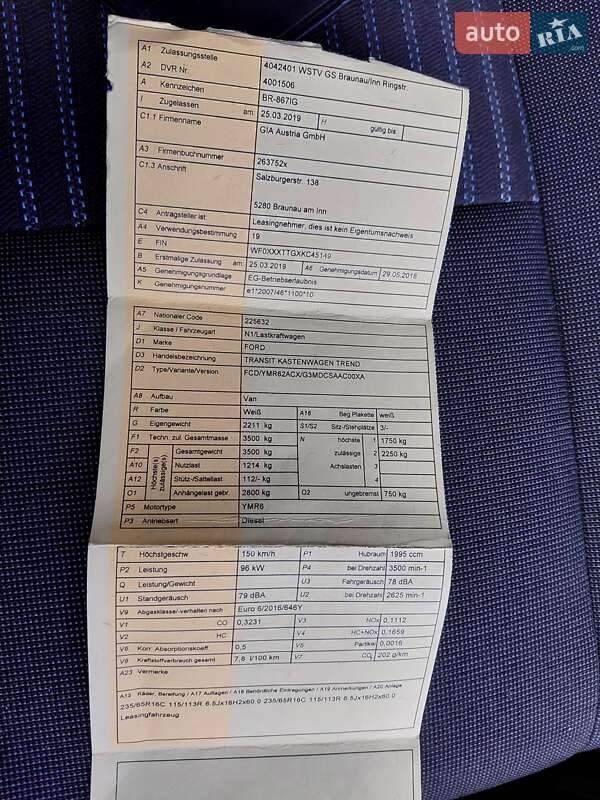 auto RIA
A1 Zulassungsstelle 4042401 WSTV GS Braunau/Inn Ringstr.
A2 DVR Nr. 4001506
A Kennzeichen BR-867IG
I Zugelassen am: 25.03.2019 H gültig bis:
C1.1 Firmenname GIA Austria GmbH
A3 Firmenbuchnummer 263752x
C1.3 Anschrift Salzburgerstr. 138
5280 Braunau am Inn
C4 Antragsteller ist: Leasingnehmer, dies ist kein Eigentumsnachweis
A4 Verwendungsbestimmung 19
E FIN WF0XXXTTGXKC45149
B Erstmalige Zulassung am 25.03.2019 A6 Genehmigungsdatum 29.05.2018
A5 Genehmigungsgrundlage EG-Betriebserlaubnis
K Genehmigungsnummer e1*2007/46*1100*10
A7 Nationaler Code 225632
J Klasse / Fahrzeugart N1/Lastkraftwagen
D1 Marke FORD
D3 Handelsbezeichnung TRANSIT KASTENWAGEN TREND
D2 Type/Variante/Version FCD/YMR62ACX/G3MDCSAAC00XA
A8 Aufbau Van
R Farbe Weiß A16 Beg Plakette weiß
G Eigengewicht 2211 kg S1/S2 Sitz-/Stehplätze 3/-
F1 Techn. zul. Gesamtmasse 3500 kg N höchste 1 1750 kg
Höchste(s) zulässige(s)
F2 Gesamtgewicht 3500 kg zulässige 2 2250 kg
A10 Nutzlast 1214 kg Achslasten 3
A12 Stütz-/Sattellast 112/- kg 4
O1 Anhängelast gebr. 2800 kg O2 ungebremst 750 kg
P5 Motortype YMR6
P3 Antriebsart Diesel
T Höchstgeschw. 150 km/h P1 Hubraum 1995 ccm
P2 Leistung 96 kW P4 bei Drehzahl 3500 min-1
Q Leistung/Gewicht U3 Fahrgeräusch 78 dBA
U1 Standgeräusch 79 dBA U2 bei Drehzahl 2625 min-1
V9 Abgasklasse/-verhalten nach Euro 6/2016/646Y
V1 CO 0,3231 V3 NOx 0,1112
V2 HC V4 HC+NOx 0,1659
V6 Korr. Absorptionskoeff. 0,5 V5 Partikel 0,0016
V8 Kraftstoffverbrauch gesamt 7,8 l/100 km V7 CO₂ 202 g/km
A23 Vermerke
A13 Räder, Bereifung / A17 Auflagen / A18 Behördliche Eintragungen / A19 Anmerkungen / A20 Anlage
235/65R16C 115/113R 6.5Jx16H2x60.0 235/65R16C 115/113R 6.5Jx16H2x60.0
Leasingfahrzeug